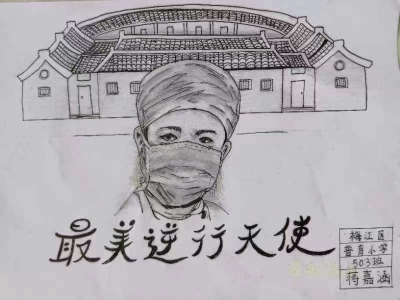 最美逆行天使
梅江区
普育小学
503班
蒋嘉涵